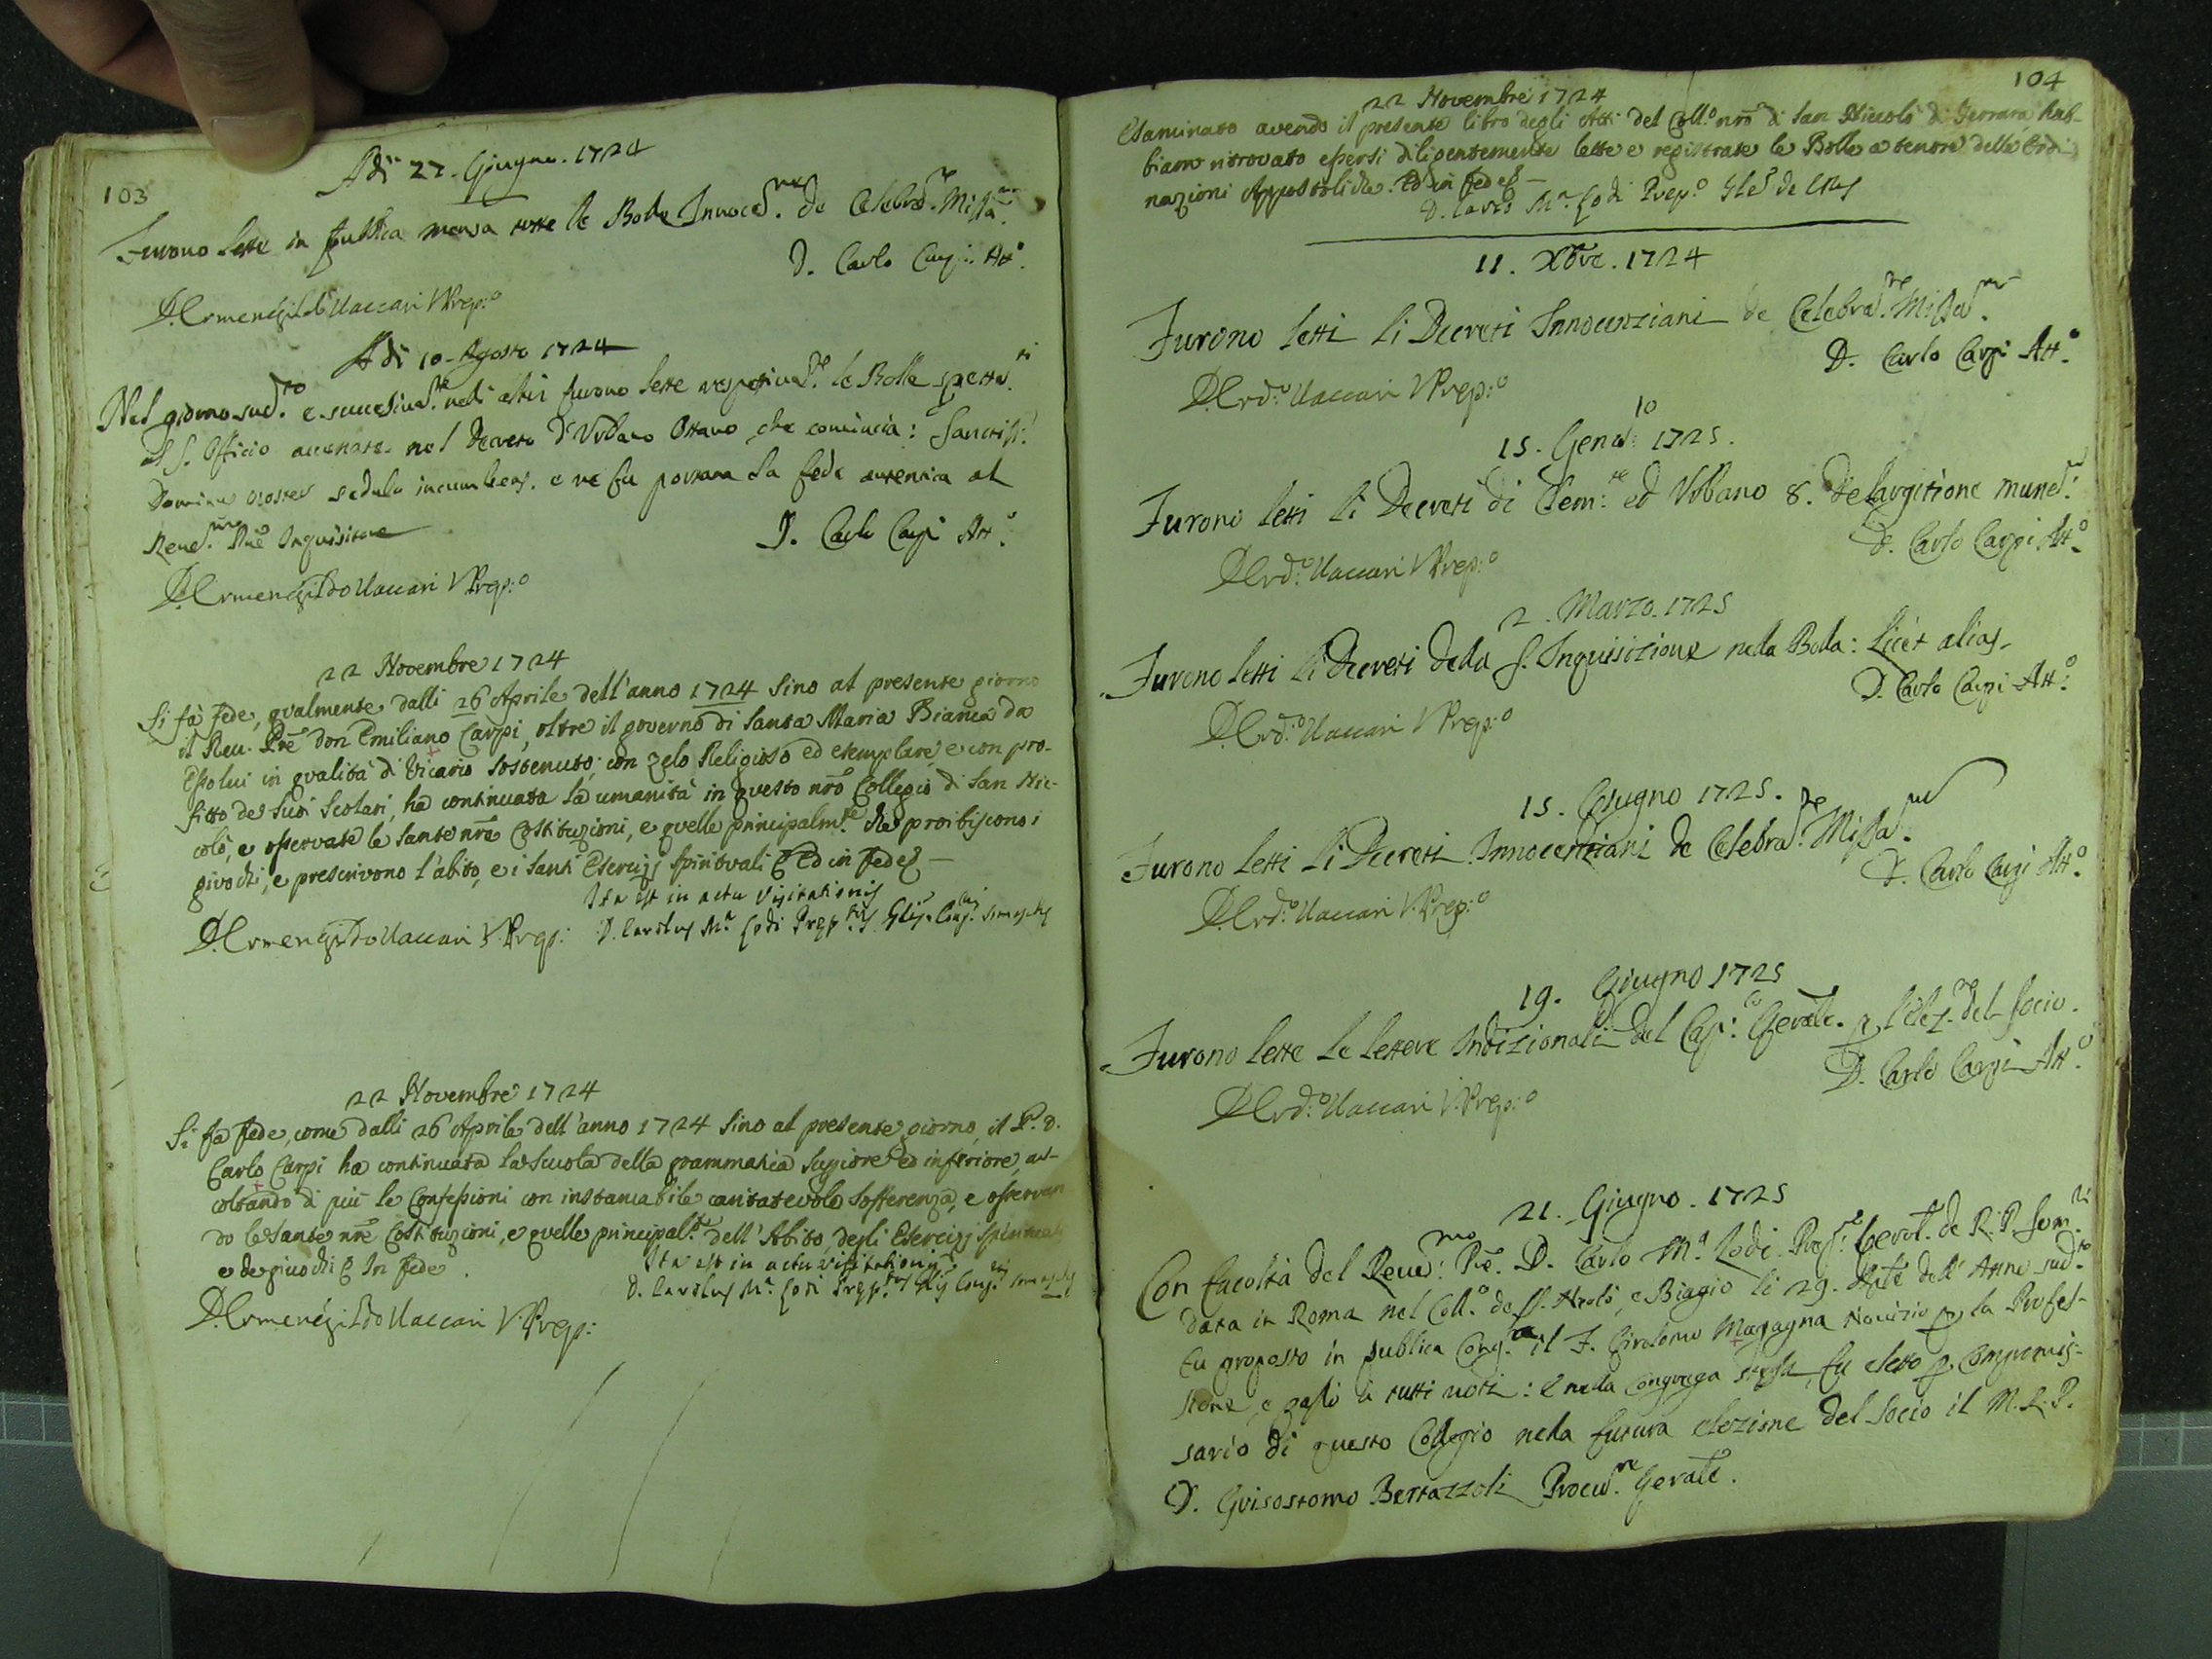 103
Adi 27. Giugno. 1724
Furono lette in publica mensa tutte le Bolle Innoce. de Celebrne. Missarum
D. Carlo Carpi Atto.
D. Ermenegildo Vaccari VPrep:o
Adi 10. Agosto 1724
Nel giorno sudto. e successivate. nedi altri furono lette respetivate. le Bolle spettati.
al S. Officio accennate nel decreto d'Urbano Ottavo che comincia: Sanctiss:
Dominus noster sedulo incumbens. e ne fu portata la fede autentica al
Revemo. Pre Inquisitore
D. Carlo Carpi Atto.
D. Ermenegildo Vaccari VPrep:o
22 Novembre 1724
Si fà fede, qualmente dalli 26 Aprile dell'anno 1724 sino al presente giorno
il Reu. Pre don Emiliano Carpi, oltre il governo di Santa Maria Bianca da
Esso lui in qualità di Vicario sostenuto; con zelo Religioso ed esemplare, e con pro-
fitto de' suoi Scolari, ha continuata la umanità in questo nro Collegio di San Nic-
colò, e osservate le sante nre Costituzioni, e quelle principalmte. che proibiscono i
givochi, e prescrivono l'abito, e i santi Esercizj spirituali &c Ed in fede &c —
Ita est in actu Visitationis
D. Ermenegildo Vaccari V.Prep: D. Carolus Ma. Lodi Preptus Glis Congnis Somaschę
22 Novembre 1724
Si fa fede, come dalli 26 Aprile dell'anno 1724 sino al presente giorno, il P. D.
Carlo Carpi ha continuata la Scuola della grammatica superiore ed inferiore, as-
coltando di più le Confessioni con instancabile caritatevole sofferenza, e osservan
do le sante nre Costituzioni, e quelle principalte. dell'Abito, degli Esercizj spirituali
e de givochi &c In fede.
Ita est in actu visitationis
D. Carolus Ma. Lodi Preptus Glis Congnis Somaschę
D. Ermenegildo Vaccari V.Prep:
104
22 Novembre 1724
Esaminato avendo il presente libro degli Atti del Coll.o nro di San Niccolò di Ferrara, hab-
biam ritrovato essersi diligentemente lette e registrate le Bolle a tenore delle Ordi-
nazioni Appostoliche. Ed in fede &c —
D. Carlo Ma. Lodi Prep.o Gle de CRS
11. Xbre. 1724
Furono letti li Decreti Innocenziani de Celebrane. Missarum.
D. Carlo Carpi Atto.
D. Erd:o Vaccari VPrep:o
15. Gen:io 1725.
Furono letti li Decreti di Clem:te ed Urbano 8. de largitione muner.
D. Carlo Carpi Atto.
D. Erd:o Vaccari VPrep:o
2. Marzo. 1725
Furono letti li Decreti della S. Inquisizione nella Bolla: Licèt alias.
D. Carlo Carpi Atto.
D. Erd:o Vaccari VPrep:o
15. Giugno 1725.
Furono letti li Decreti Innocenziani de Celebrane. Missarum.
D. Carlo Carpi Atto.
D. Erd:o Vaccari V.Prep:o
19. Giugno 1725
Furono lette le lettere Indizionali del Cap:lo Gerale. p l'elezne. del Socio.
D. Carlo Carpi Atto.
D. Erd:o Vaccari V.Prep:o
21. Giugno. 1725
Con facoltà del Revemo. Pre. D. Carlo Ma. Lodi Prep: Geral. de R.P. Som.
data in Roma nel Coll.o de SS. Nicolò, e Biagio li 29. dell'Anno sudto.
fu proposto in publica Cong.a il F. Girolamo Magagna Novizio p la Profes-
sione, e passò à tutti voti: E nella congrega stessa, fu eletto p Compromis-
sario di questo Collegio nella futura elezione del Socio il M.R.P.
D. Grisostomo Bertazzoli Procure. Gerale.